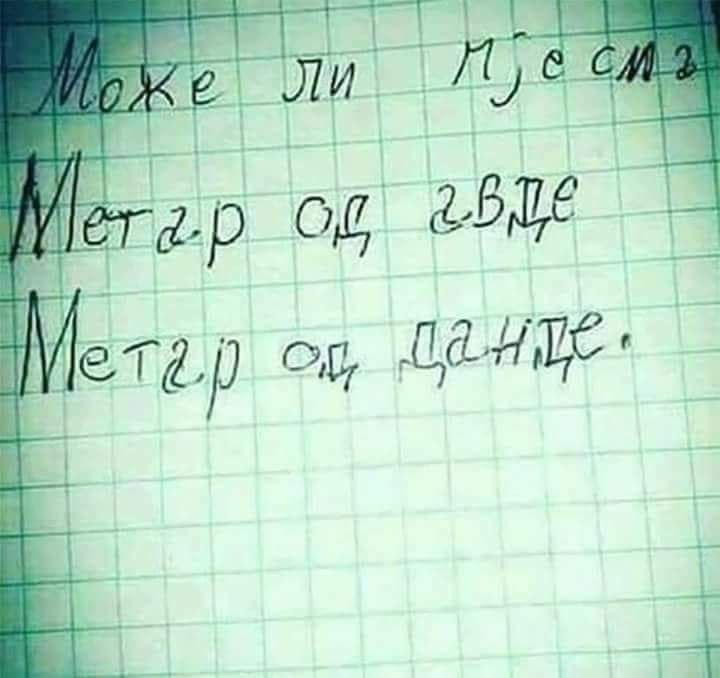 Може ли пјесма
Метар од авде
Метар од данде.